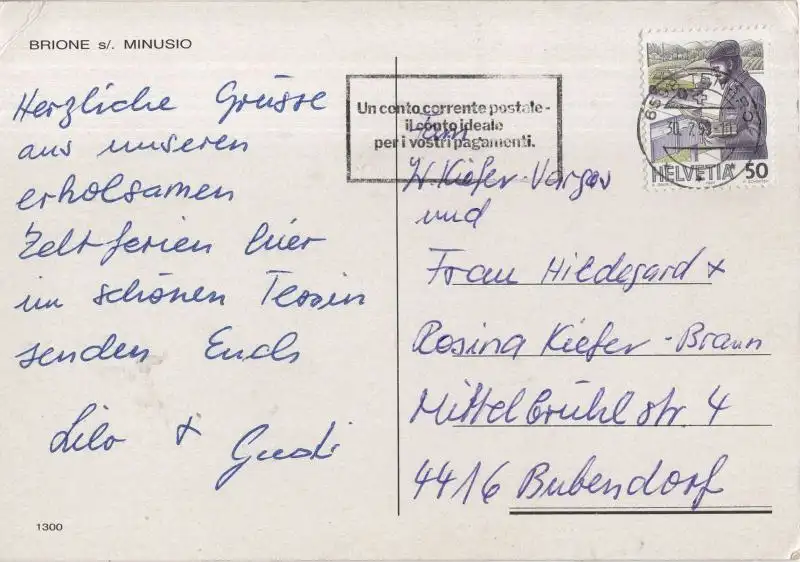 BRIONE s/. MINUSIO
Herzliche Grüsse
aus unseren
erholsamen
Zeltferien hier
im schönen Tessin
senden Euch
Lilo + 
1300
Un conto corrente postale -
il conto ideale
per i vostri pagamenti.
30.-7.
HELVETIA 50
Fam.
W. Kiefer-Vargas
und
Frau Hildegard +
Rosina Kiefer-Braun
Mittelbrühlstr. 4
4416 Bubendorf